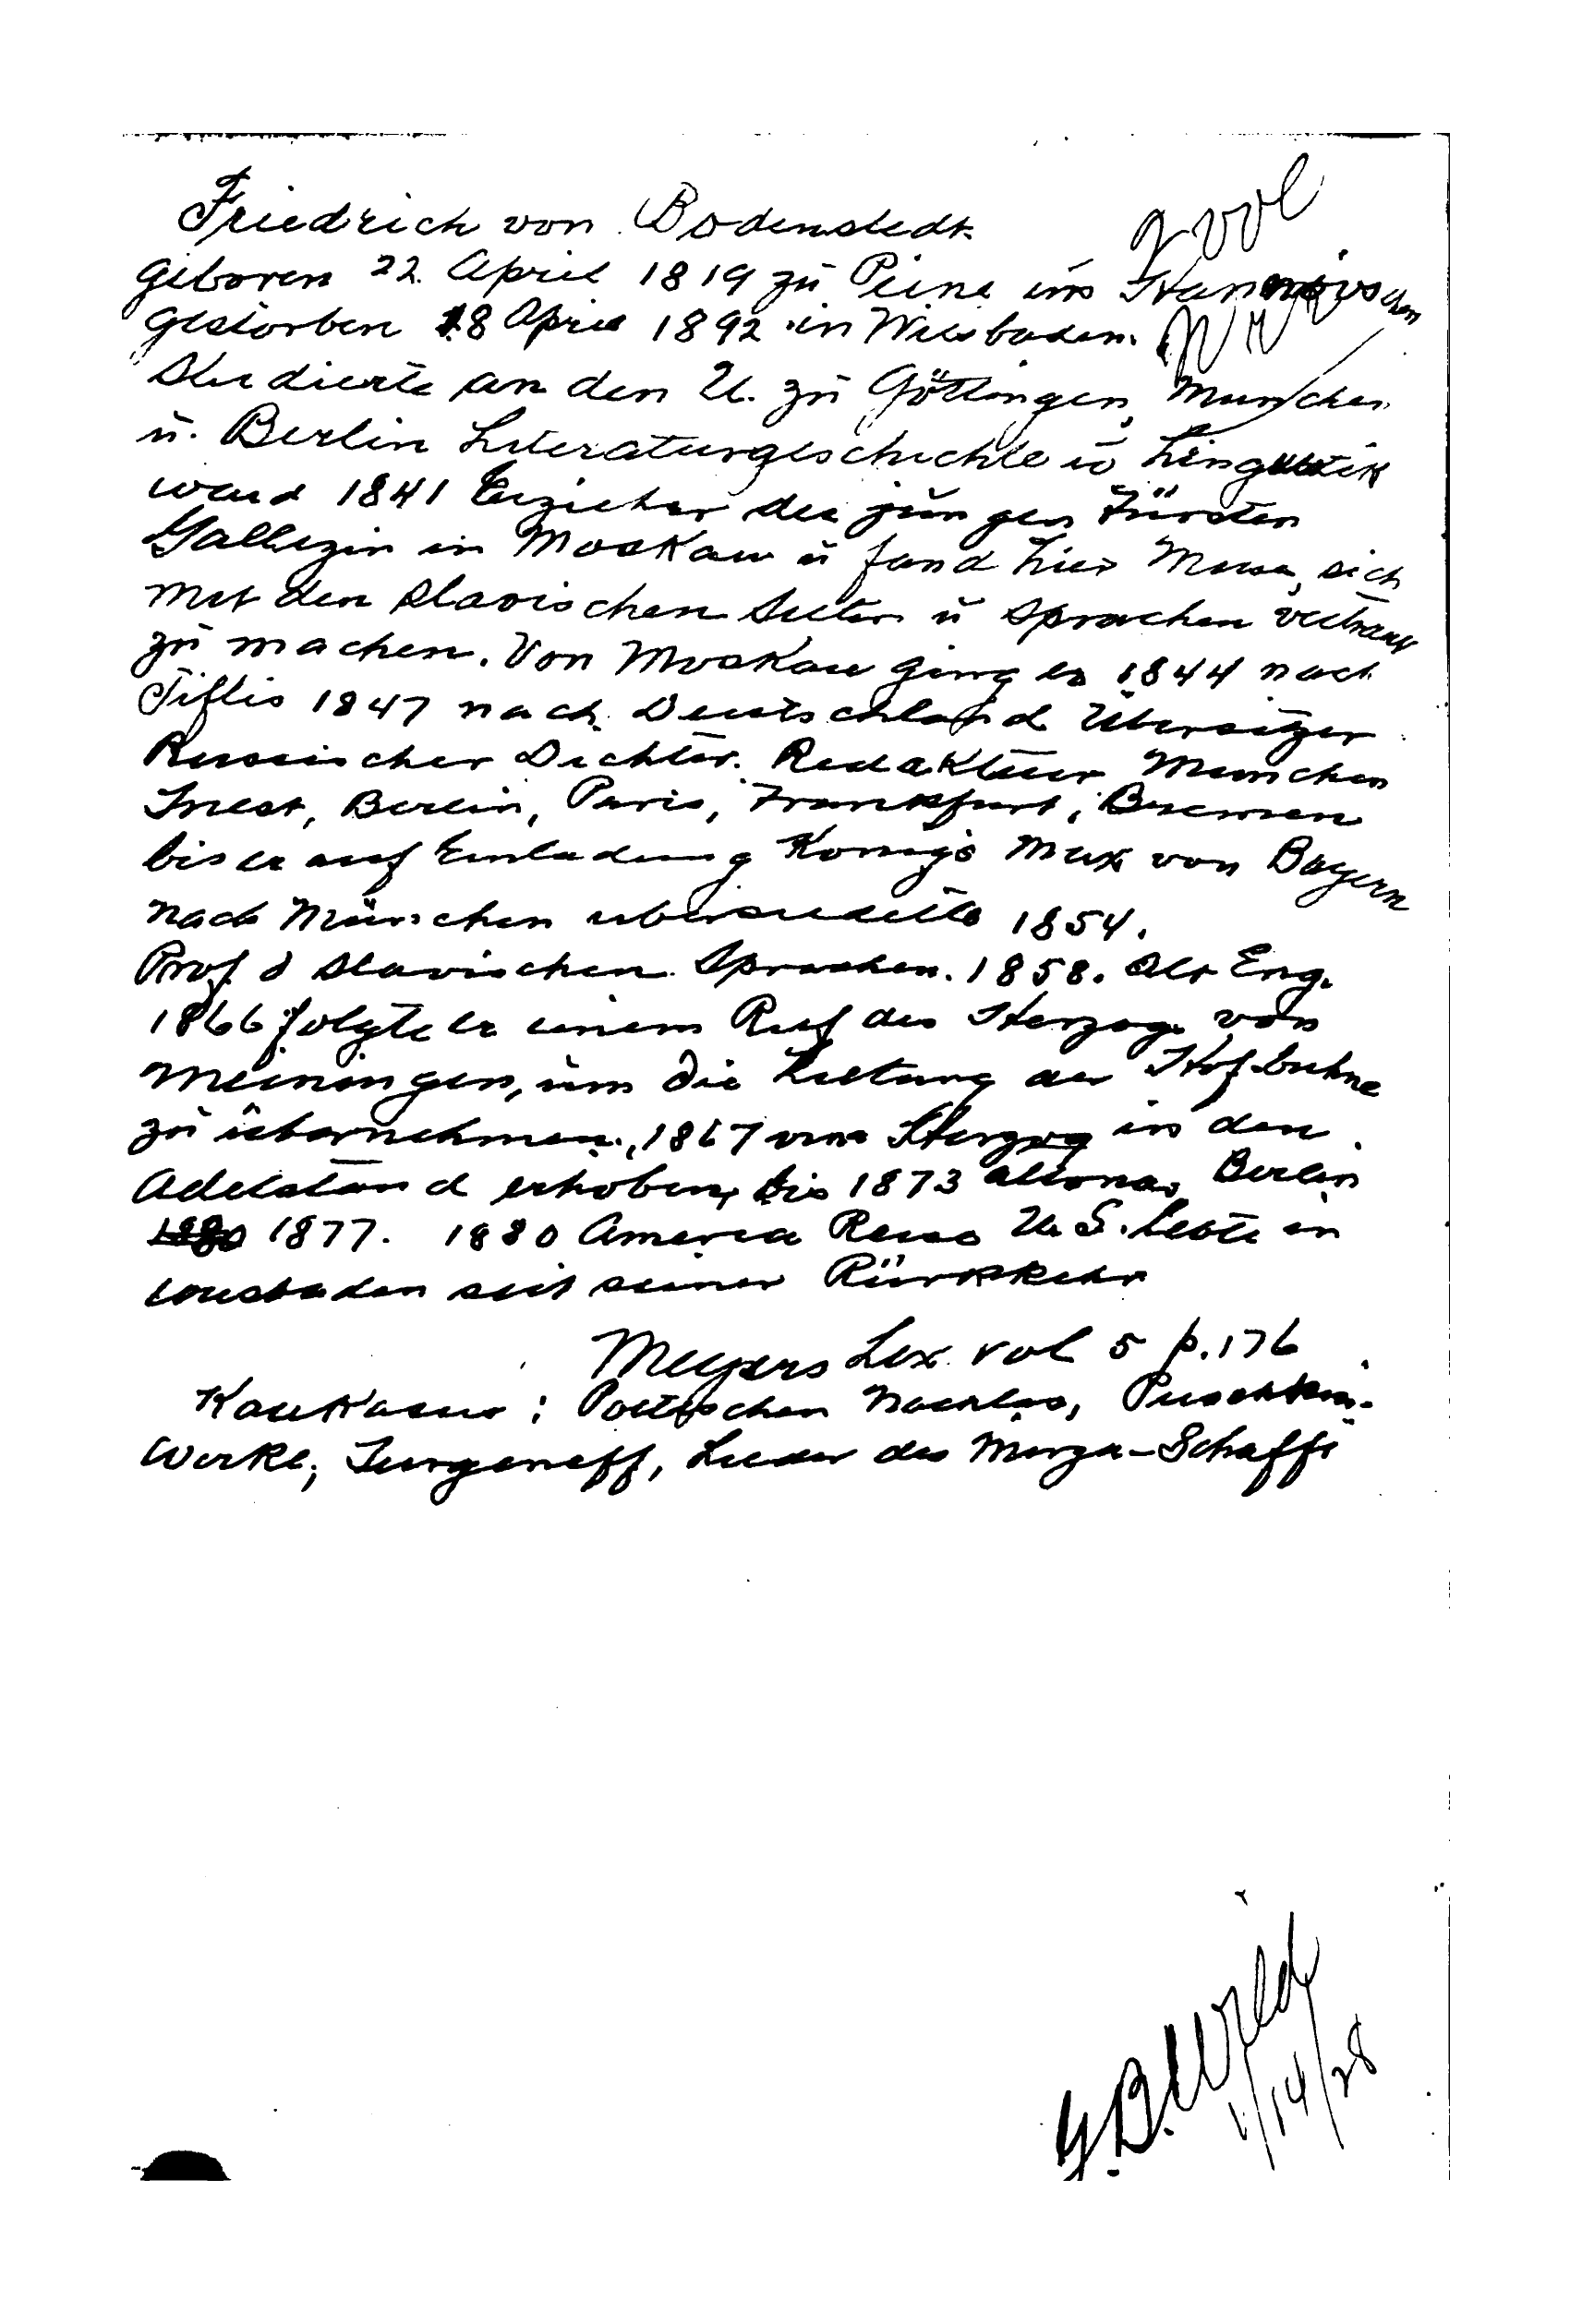 Friedrich von Bodenstedt.
geboren 22. April 1819 zu Peine im Hannövschen
gestorben 18 April 1892 in Wiesbaden.
Studierte an den U. zu Göttingen, Munchen
u. Berlin Literaturgeschichte u
ward 1841 Erzieher des jungen Fürsten
Gallizin in Moskau u fand hier Muse, sich
mit den slavischen u Sprachen vertraut
zu machen. Von Moskau ging er 1844 nach
Tiflis 1847 nach Deutschland Übersetzer
Russischer Dichter. Redakteur Munchen
Triest, Berlin, Paris, Frankfurt, Bremen
bis er auf Einladung Konigs Max von Bayern
nach München ubersiedelte 1854.
Prof. d slavischen Sprachen. 1858. Alt Eng.
1866 folgte er einem Ruf des Herzogs von
Meiningen, um die Leitung der Hofbuhne
zu übernehmen, 1867 vom Herzog in den
Adelstand erhoben, bis 1873 Altona, Berlin
1877. 1880 America Reise U. S. lebte in
Wiesbaden seit seiner Rürkkehr
Meyers Lex. vol 5 p. 176
Kaukasus; Poetischen Nachlas, Puschkin-
Werke; Turgeneff, Lieder des Mirza-Schaffi
G.B. Wild
1/14/28